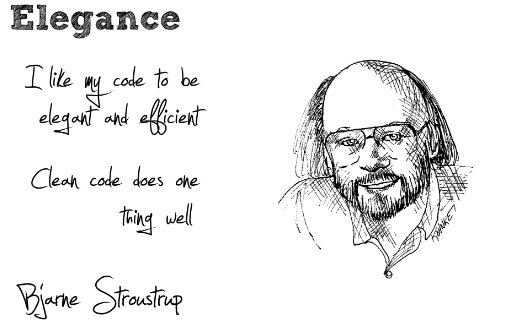 Elegance
I like my code to be
elegant and efficient
Clean code does one
thing well
Bjarne Stroustrup